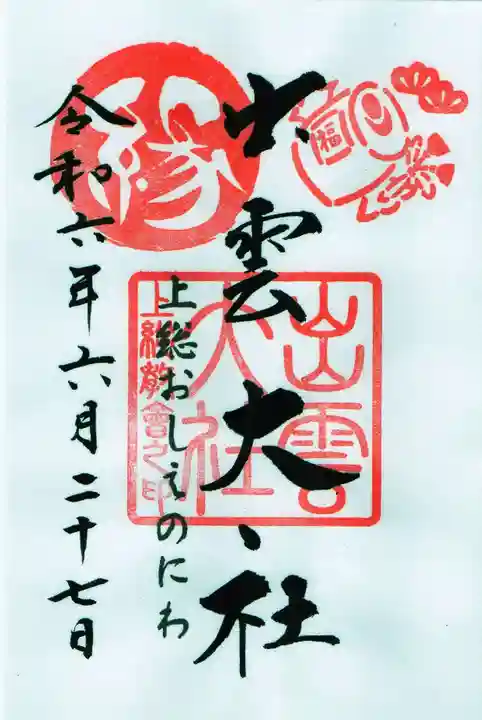 出雲大社
上総おしえのにわ
令和六年六月二十七日
福
縁
出雲
大社
上総教會之印